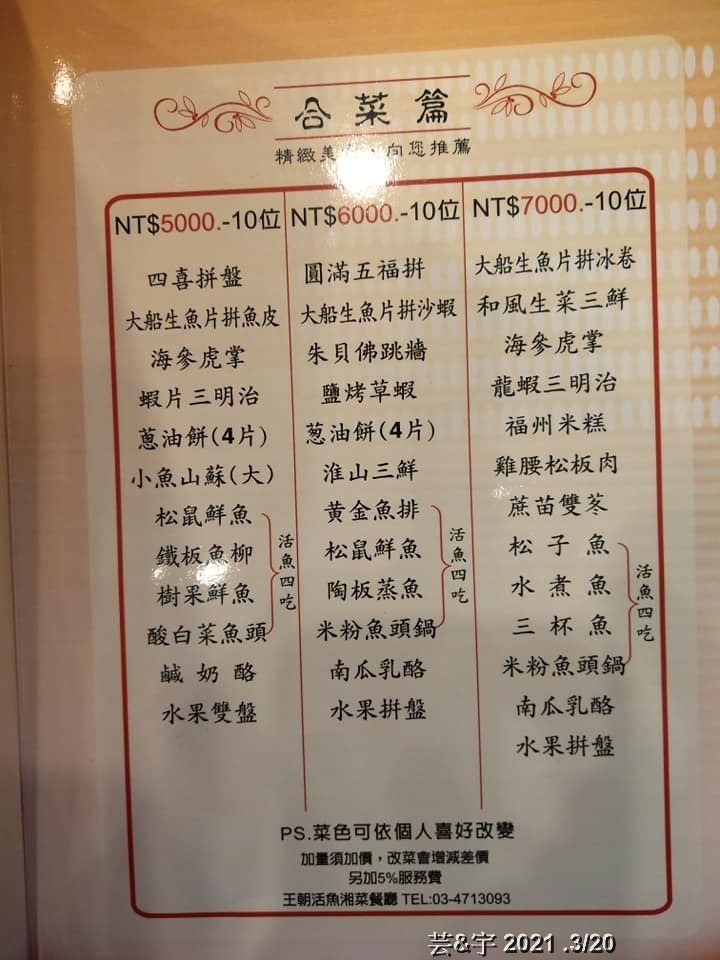 合菜篇
精緻美 向您推薦
NT$5000.-10位
四喜拼盤
大船生魚片拼魚皮
海參虎掌
蝦片三明治
蔥油餅(4片)
小魚山蘇(大)
松鼠鮮魚
鐵板魚柳
樹果鮮魚
酸白菜魚頭
活魚四吃
鹹奶酪
水果雙盤
NT$6000.-10位
圓滿五福拼
大船生魚片拼沙蝦
朱貝佛跳牆
鹽烤草蝦
葱油餅(4片)
淮山三鮮
黄金魚排
松鼠鮮魚
陶板蒸魚
米粉魚頭鍋
活魚四吃
南瓜乳酪
水果拼盤
NT$7000.-10位
大船生魚片拼冰卷
和風生菜三鮮
海參虎掌
龍蝦三明治
福州米糕
雞腰松板肉
蔗苗雙苳
松子魚
水煮魚
三杯魚
米粉魚頭鍋
活魚四吃
南瓜乳酪
水果拼盤
PS.菜色可依個人喜好改變
加量須加價，改菜會增減差價
另加5%服務費
王朝活魚湘菜餐廳 TEL:03-4713093
芸&宇 2021 .3/20